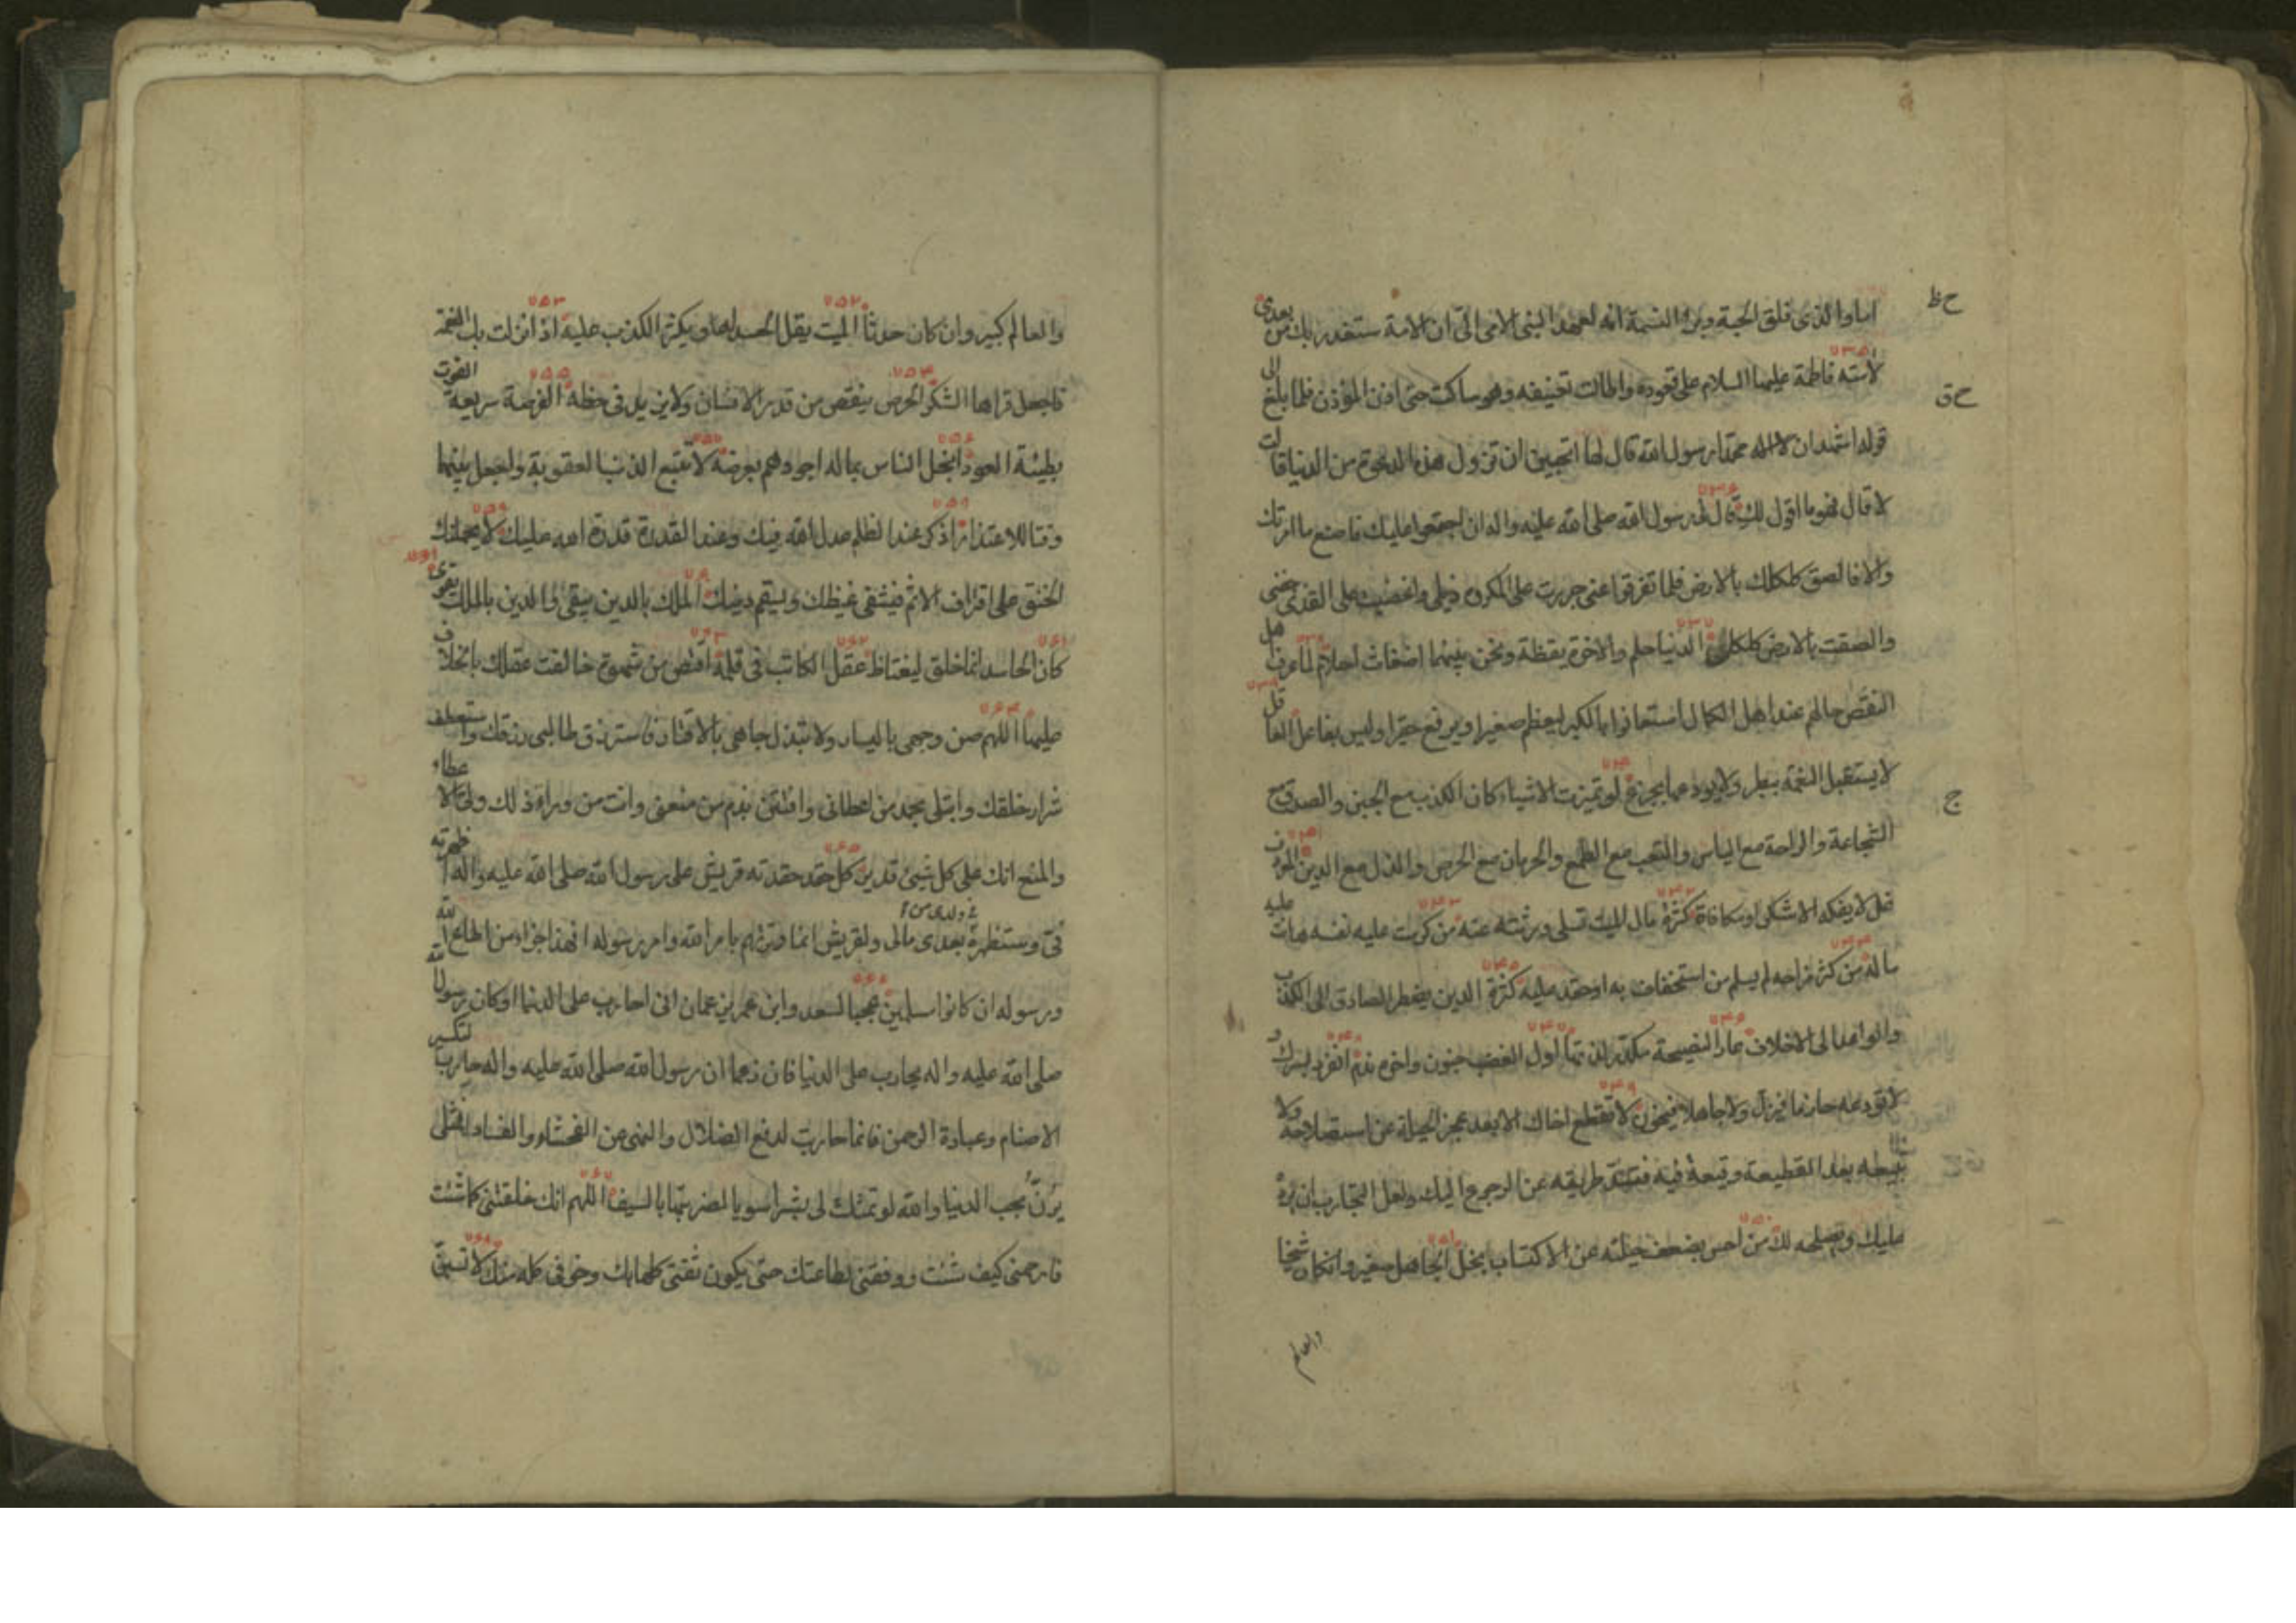 اما والذى فلق الحبة وبرا النسمة انه لعهد النبى الامى الىّ ان الامة ستغدر بك من بعدى
٧٣٥
لامته فاطمة عليها السلام على قعوده واطالت تعنيفه وهو ساكت حتى اذن المؤذن فلما بلغ الى
قوله اشهد ان محمدا رسول الله قال لها اتحبين ان تزول هذه الدعوة من الدنيا قالت
لا قال فهو ما اقول لك قال لى رسول الله صلى الله عليه واله ان اجتمعوا عليك فاصنع ما امرتك
٧٣٦
والا فالصق كلكلك بالارض فلما تفرقوا عنى جررت على المكروه ذيلى واغضيت على القذى جفنى
والصقت بالارض كلكلى الدنيا حلم والاخرة يقظة ونحن بينهما اضغاث احلام لما عرف اهل
٧٣٧
النقص حالهم عند اهل الكمال استعانوا بالكبر ليعظم صغيرا ويرفع حقيرا وليس بفاعل العاقل
لا يستقبل النعمة ببطر ولا يودعها بجزع لو تميزت الاشياء كان الكذب مع الجبن والصدق مع
الشجاعة والراحة مع الياس والتعب مع الطمع والحرمان مع الحرص والذل مع الدين المعروف
غل لا يفكه الا شكر او مكافاة كثرة مال الميت تسلى ورثته عنه من كرمت عليه نفسه هان عليه
٧٤٣
ماله من كثر مزاحه لم يسلم من استخفاف به او حقد عليه كثرة الدين يضطر الصادق الى الكذب
٧٤٥
والواعد الى الاخلاف عار النصيحة مكدرا اول الغضب جنون واخره ندم انفرد بسرك و
٧٤٦ ٧٤٧ ٧٤٨
لا تودعه حازما فيزل ولا جاهلا فيخون لا تقطع اخاك الا بعد عجز الحيلة عن استصلاحه ولا
٧٤٩
تتبعه بعد القطيعة وقيعة فيه فتسد طريقه عن الرجوع اليك ولعل التجارب ان يرده
عليك ويصلحه لك من احس بضعف حيلته عن الاكتساب بخل الجاهل صغير وان كان شيخا
٧٥٠ ٧٥١
والعالم
ح ظ
ح ق
ج
والعالم كبير وان كان حدثا الميت يقل الحسد له ويكثر الكذب عليه اذا نزلت بك النعمة
٧٥٢ ٧٥٣
فاجعل قراها الشكر الحرص ينقص من قدر الانسان ولا يزيد فى حظه الفرصة سريعة الفوت
٧٥٤ ٧٥٥
بطيئة العود ابخل الناس بماله اجودهم بعرضه لا تتبع الذنب العقوبة واجعل بينهما
٧٥٦ ٧٥٧
وقتا للاعتذار اذكر عند الظلم عدل الله فيك وعند القدرة قدرة الله عليك لا يحملنك
٧٥٨ ٧٥٩
الحنق على اقتراف الاثم فيشفى غيظك ويسقم دينك الملك بالدين يبقى والدين بالملك يقوى
كان الحاسد انما خلق ليغتاظ عقل الكاتب فى قلمه اقتص من شهوة خالفت عقلك بالخلاف
٧٦١ ٧٦٢ ٧٦٣
عليها اللهم صن وجهى باليسار ولا تبذل جاهى بالاقتار فاسترزق طالبى رزقك واستعطف
٧٦٤
شرار خلقك وابتلى بحمد من اعطانى وافتتن بذم من منعنى وانت من وراء ذلك ولى الاعطاء
والمنع انك على كل شىئ قدير كل حقد حقدته قريش على رسول الله صلى الله عليه واله اظهرته
٧٦٥
فىّ وستظهره فى ولدى من بعدى مالى ولقريش انما وترتهم بامر الله وامر رسوله افهذا جزاء من اطاع الله
ورسوله ان كانوا مسلمين عجبا لسعد وابن عمر يزعمان انى احارب على الدنيا اوكان رسول الله
٧٦٦
صلى الله عليه واله يحارب على الدنيا فان زعما ان رسول الله صلى الله عليه واله حارب لتكسير
الاصنام وعبادة الرحمن فانما حاربت لدفع الضلال والنهى عن الفحشاء والفساد افمثلى
يزنّ بحب الدنيا والله لو تمثلت لى بشرا سويا لضربتها بالسيف اللهم انك خلقتنى كما شئت
٧٦٧
فارحمنى كيف شئت ووفقنى لطاعتك حتى يكون ثقتى كلها بك وخوفى كله منك لا تسبنّ
٧٦٨